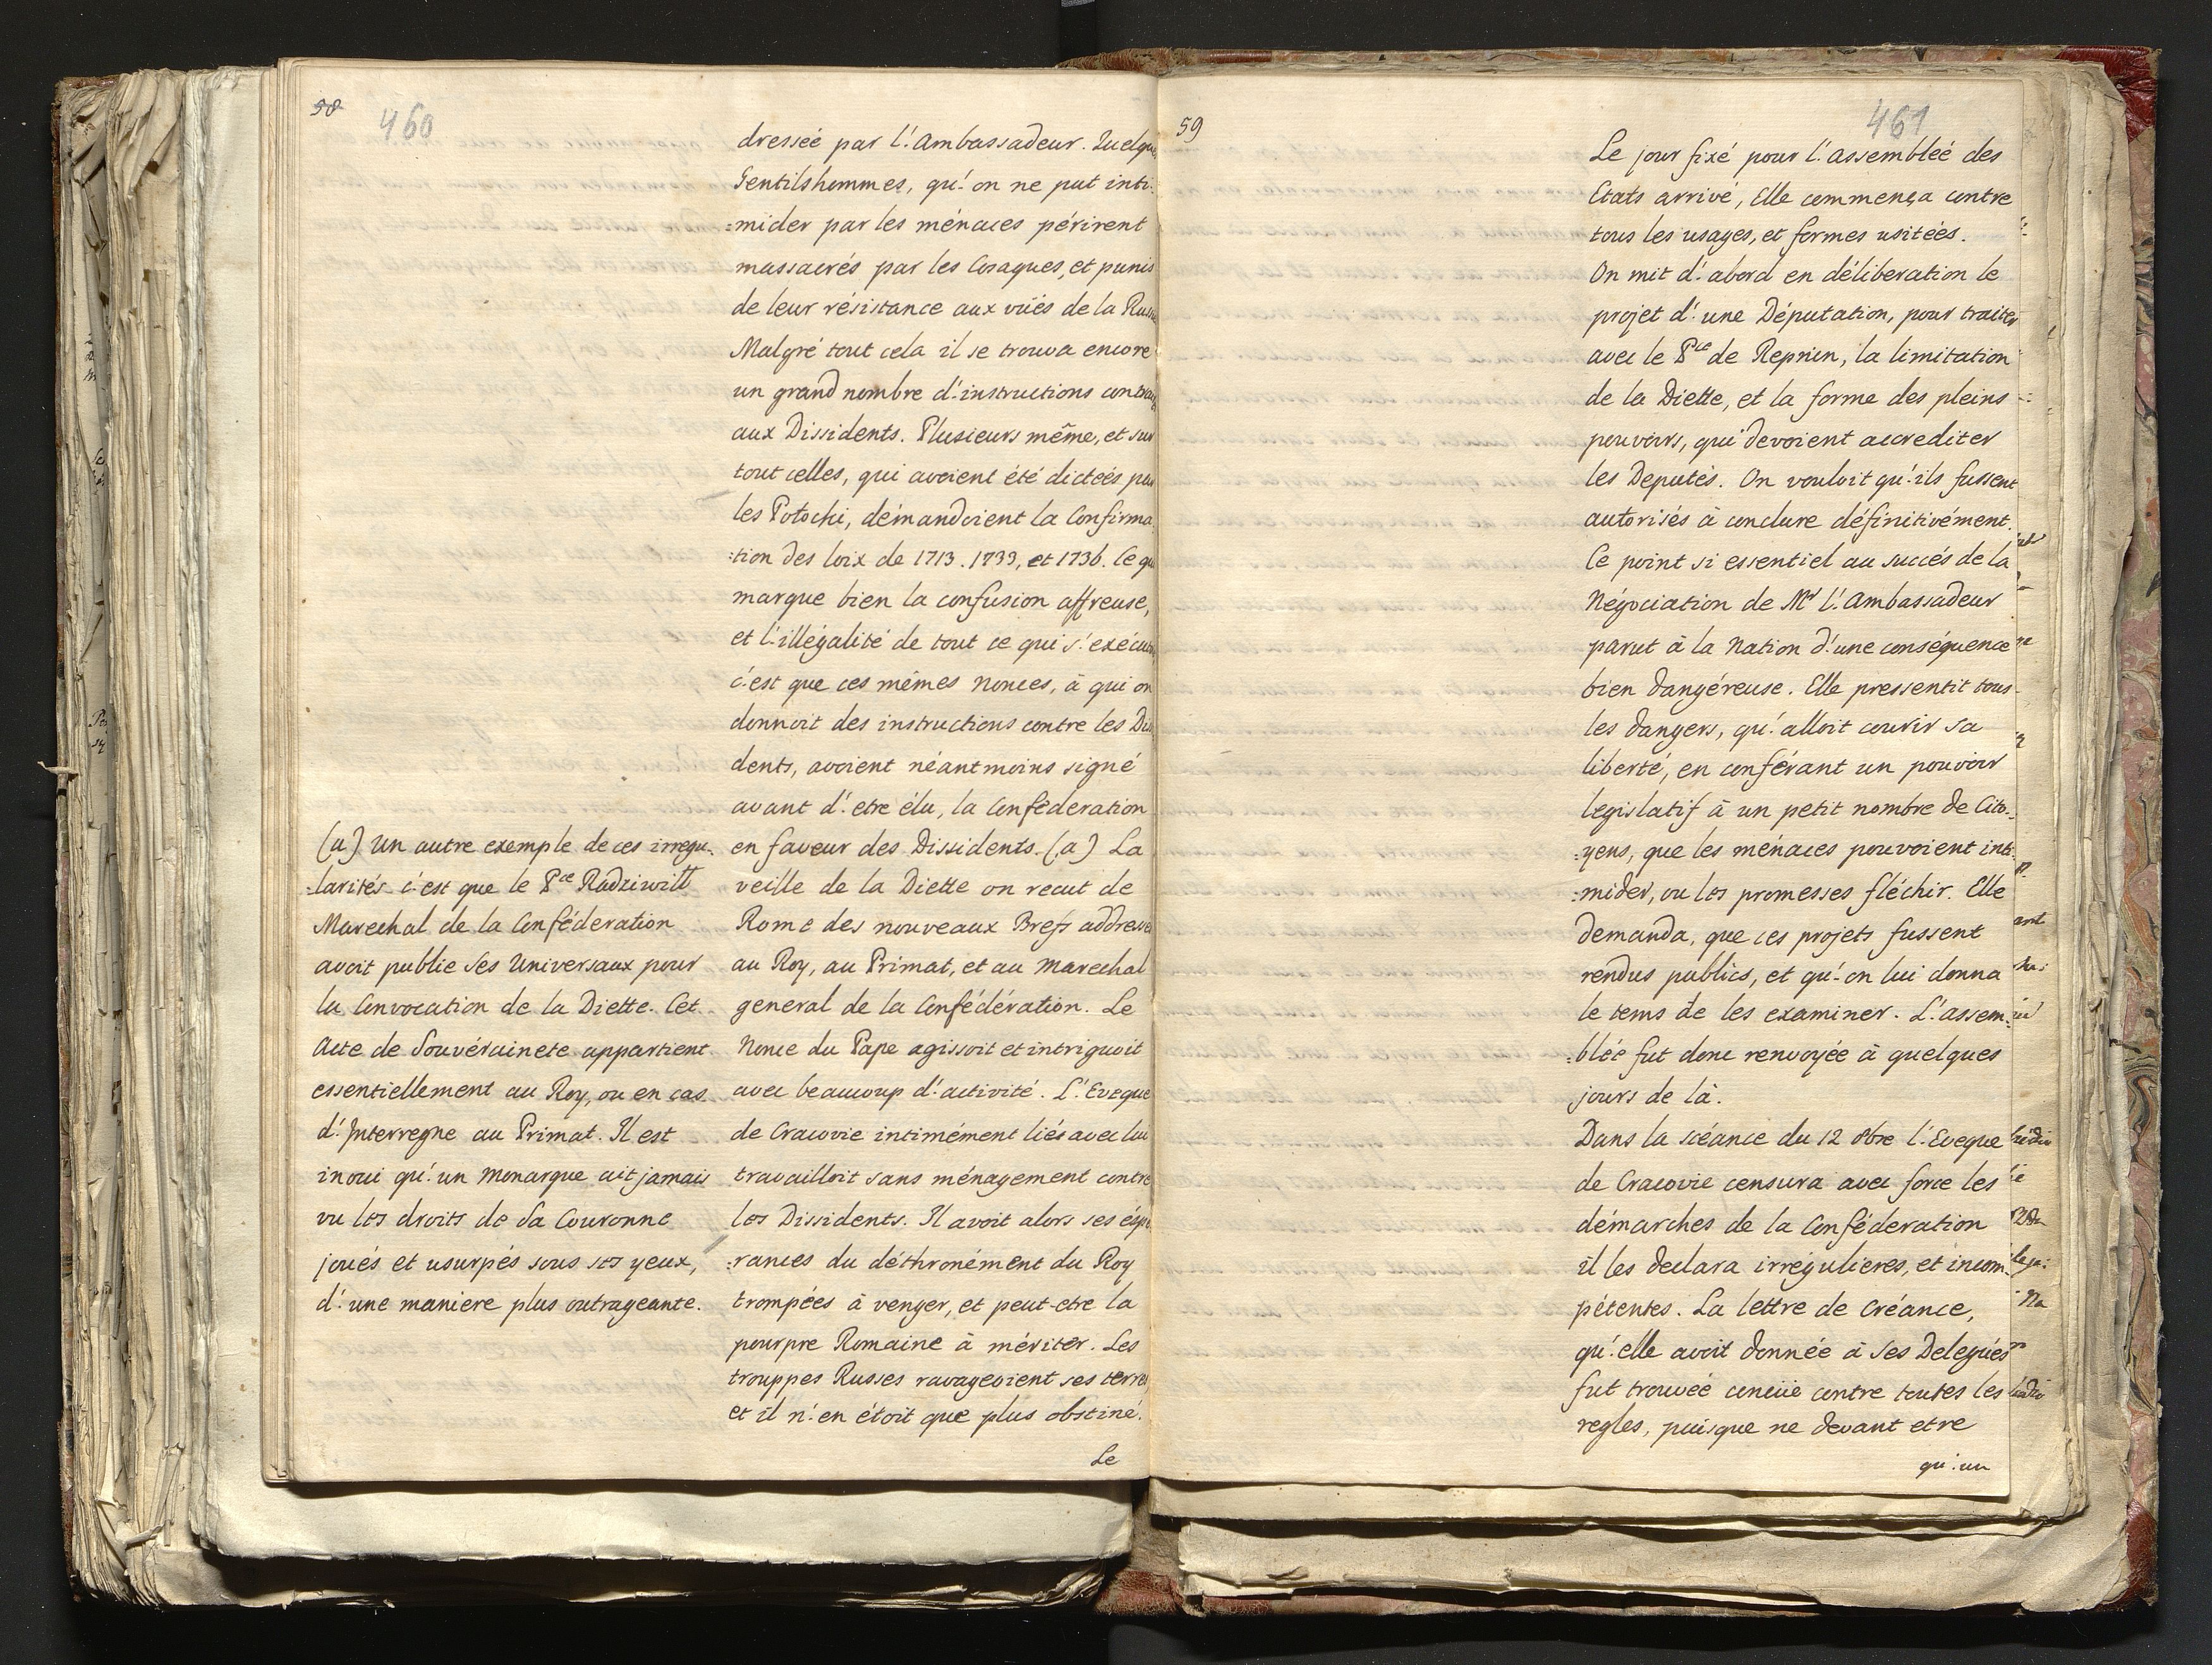 58
460
dresséé par l'Ambassadeur. Quelqu
Gentilshommes, qu'on ne put inti:
:mider par les ménaces périrent
massacrés par les Cosaques, et punis
de leur résistance aux vüés de la
Malgré tout cela il se trouva encore
un grand nombre d'instructions
aux Dissidents. Plusieurs même, et sur
tout celles, qui avoient été dictéés
les Potocki, démandoient la Confirma
:tion des loix de 1713. 1733, et 1736. Ce
marque bien la confusion affreuse,
et l'illégalité de tout ce qui s'
c'est que ces mêmes Nonces, à qui on
donnoit des instructions contre les
dents, avoient néantmoins signé
avant d'etre élu, la Confederation
en faveur des Dissidents. (a) La
veille de la Diette on recut de
Rome des nouveaux Brefs
au Roy, au Primat, et au Marechal
general de la Confédération. Le
Nonce du Pape agissoit et intriguoit
avec beaucoup d'activité. L'Eveque
de Cracovie intimément liés avec lui
travailloit sans ménagement contre
les Dissidents. Il avoit alors ses
:rances du déthronément du Roy
trompées à venger, et peut-etre la
pourpre Romaine à mériter. Les
trouppes Russes ravageoient ses terres
et il n'en étoit que plus obstiné.
Le
(a) Un autre exemple de ces irregu:
:larités c'est que le Pce Radziwill
Marechal de la Conféderation
avoit publie ses Universaux pour
la Convocation de la Diette. Cet
Acte de Souvéraineté appartient
essentiellement au Roy, ou en cas
d'Interregne au Primat. Il est
inoui qu'un Monarque ait jamais
vu les droits de Sa Couronne
joués et usurpés sous ses yeux,
d'une maniere plus outrageante.
59
461
Le jour fixé pour l'Assembléé des
Etats arrivé, Elle commença contre
tous les usages, et formes usitéés.
On mit d'abord en déliberation le
projet d'une Députation, pour traiter
avec le Pce de Repnin, la limitation
de la Diette, et la forme des pleins
pouvoirs, qui devoient accrediter
les Deputés. On vouloit qu'ils fussent
autorisés à conclure définitivément.
Ce point si essentiel au succés de la
Négociation de Mr l'Ambassadeur
parut à la Nation d'une conséquence
bien dangéreuse. Elle pressentit tous
les dangers, qu'alloit courir sa
liberté, en conférant un pouvoir
legislatif à un petit nombre de Cito:
:yens, que les ménaces pouvoient inti:
:mider, ou les promesses fléchir. Elle
demanda, que ces projets fussent
rendus publics, et qu'on lui donna
le tems de les examiner. L'Assem:
:blée fut donc renvoyée à quelques
jours de là.
Dans la scéance du 12 8bre l'Eveque
de Cracovie censura avec force les
démarches de la Conféderation
il les declara irrégulieres, et incom
pétentes. La lettre de Créance,
qu'elle avoit donnée à ses Delegués
fut trouvéé concüe contre toutes les
regles, puisque ne devant etre
qu'un